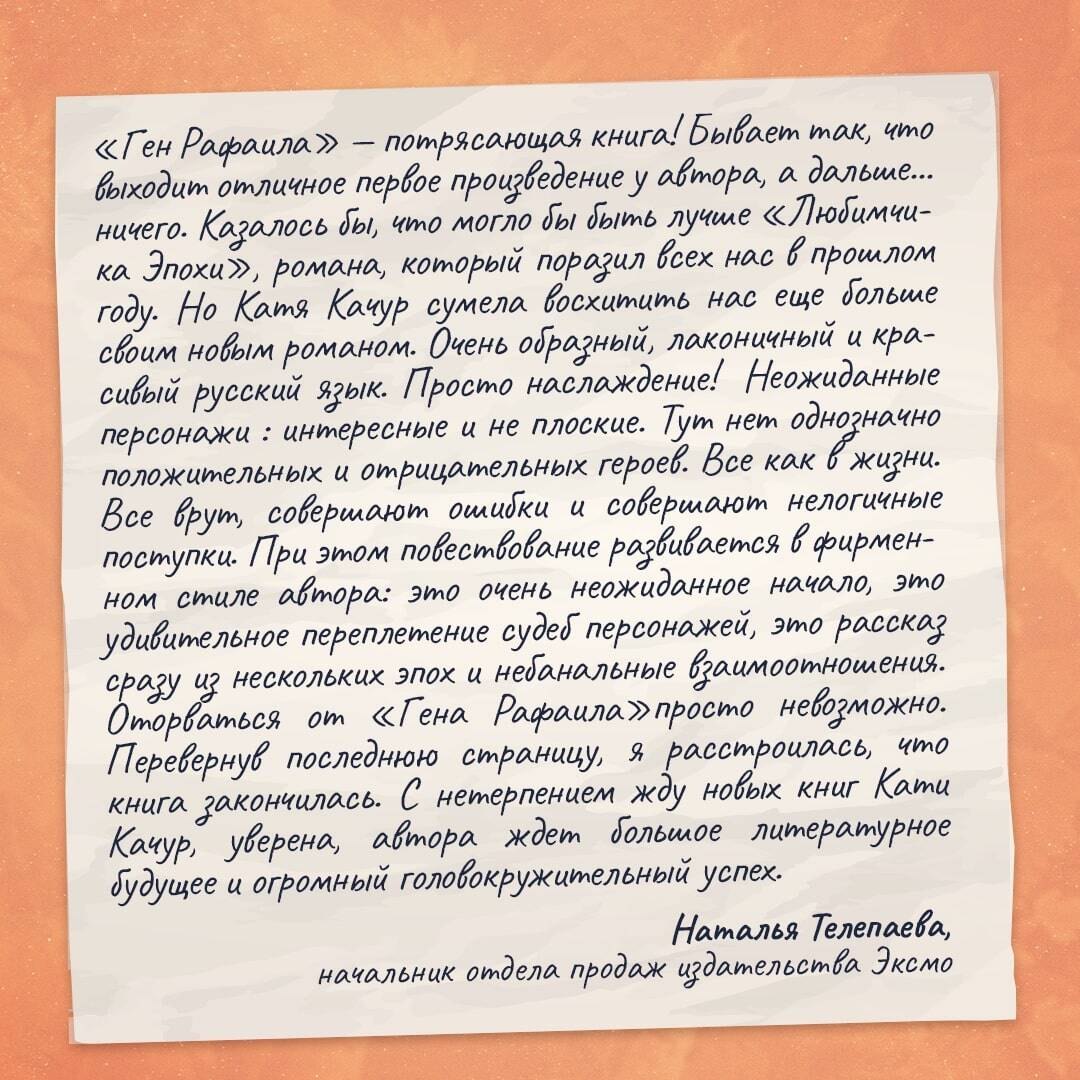 «Ген Рафаила» – потрясающая книга! Бывает так, что
выходит отличное первое произведение у автора, а дальше...
ничего. Казалось бы, что могло бы быть лучше «Любимчи-
ка Эпохи», романа, который поразил всех нас в прошлом
году. Но Катя Качур сумела восхитить нас еще больше
своим новым романом. Очень образный, лаконичный и кра-
сивый русский язык. Просто наслаждение! Неожиданные
персонажи : интересные и не плоские. Тут нет однозначно
положительных и отрицательных героев. Все как в жизни.
Все врут, совершают ошибки и совершают нелогичные
поступки. При этом повествование развивается в фирмен-
ном стиле автора: это очень неожиданное начало, это
удивительное переплетение судеб персонажей, это рассказ
сразу из нескольких эпох и небанальные взаимоотношения.
Оторваться от «Гена Рафаила»просто невозможно.
Перевернув последнюю страницу, я расстроилась, что
книга закончилась. С нетерпением жду новых книг Кати
Качур, уверена, автора ждет большое литературное
будущее и огромный головокружительный успех.
Наталья Телепаева,
начальник отдела продаж издательства Эксмо